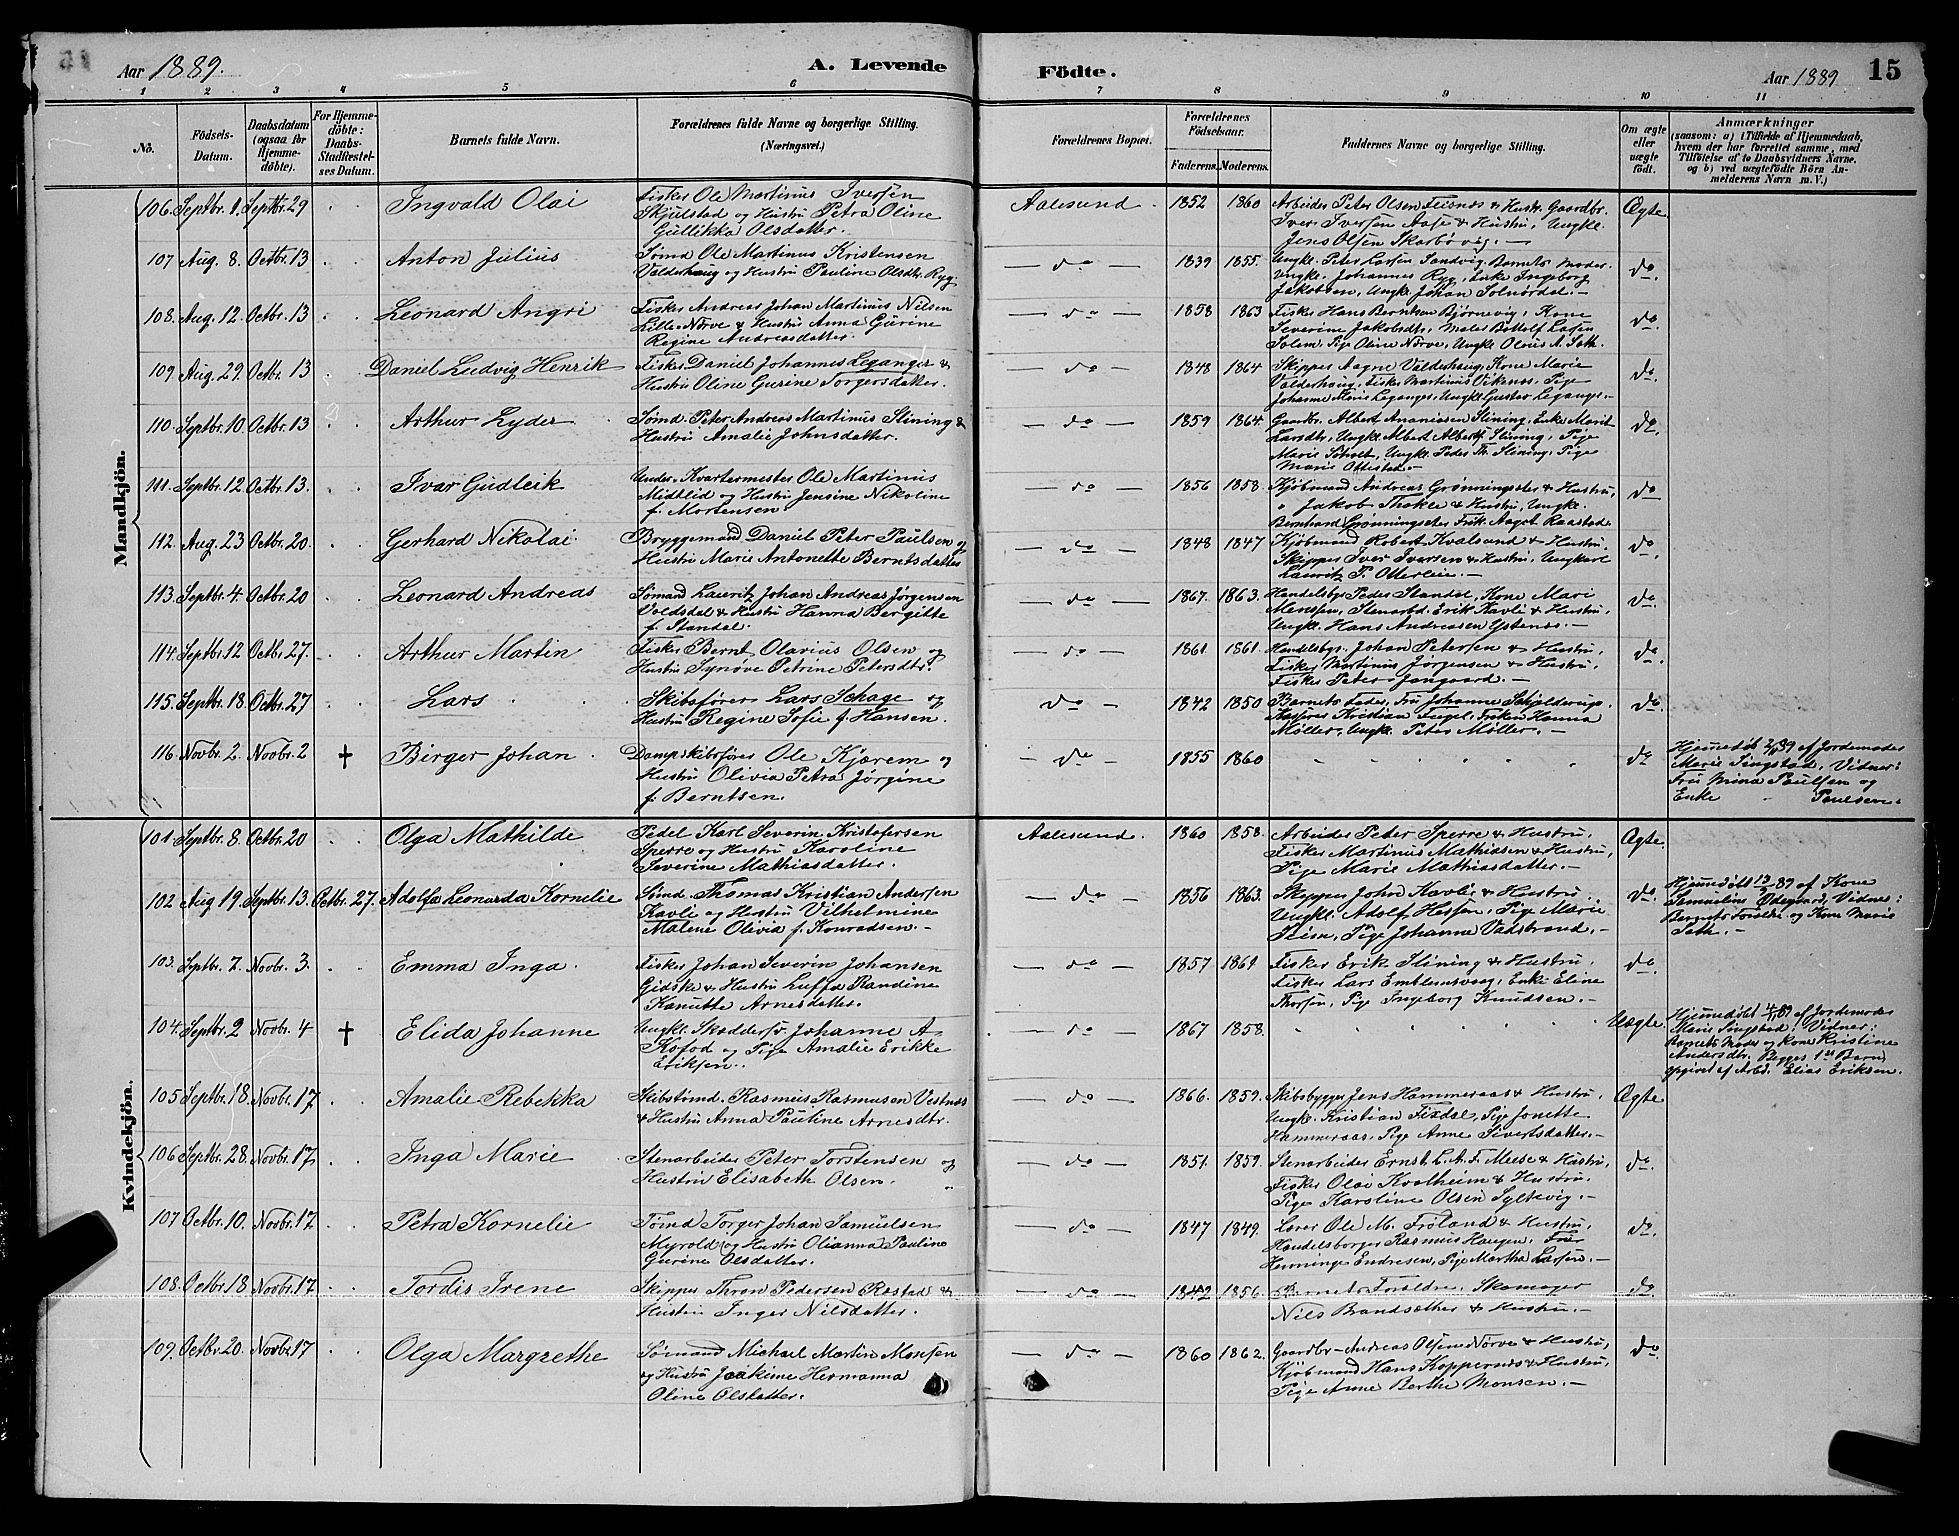 Aar 1889. A. Levende Födte. Aar 1889 15
1 2 3 4 5 6 7 8 9 10 11
No. Födsels-Datum. Daabsdatum (ogsaa for Hjemmedöbte). For Hjemmedöbte: Daabs-Stadfæstelses Datum. Barnets fulde Navn. Forældrenes fulde Navne og borgerlige Stilling. (Næringsvei.) Forældrenes Bopæl. Forældrenes Födselsaar. Faderens. Moderens. Faddernes Navne og borgerlige Stilling. Om ægte eller uægte födt. Anmærkninger (saasom: a) i Tilfælde af Hjemmedaab, hvem der har forrettet samme, med Tilföielse af to Daabsvidners Navne, og b) ved uægtefödte Börn Anmelderens Navn m. V.)
Mandkjön.
106. Septbr. 1. Septbr. 29 Ingvald Olai Fisker Ole Martinus Iversen Aalesund. 1852 1860 Arbeider Peter Olsen Feisnes & Hustr. Gaardbr. Ægte
Skjulstad og Hustru Petra Oline Iver Iversen Aase & Hustru, Ungkl.
Gullikka Olsdatter. Jens Olsen Skarbøvig. —
107 Aug. 8. Octbr. 13 Anton Julius Sømd Ole Martinus Kristensen — do — 1839 1855. Ungkl. Peter Larsen Sandvig, Barnets Moder. do
Valderhaug og Hustru Pauline Olsdtr. Ryg Ungkl. Johannes Ryg, Enke Ingeborg
Jakobsen, Ungkl. Johan Solnørdal. —
108. Aug. 12. Octbr. 13 Leonard Angri Fisker Andreas Johan Martinus Nilsen — do — 1858 1863 Fisker Hans Berntsen Bjørnevig, Kone do.
Lille-Nørve & Hustru Anna Gurine Severine Jakobsdtr, Maler Bottolf Larsen
Regine Andreasdatter. Solem, Pige Oline Nørve, Ungkl Oleus A. Sæth.
109 Aug. 29. Octbr. 13 Daniel Ludvig Henrik Fisker Daniel Johannes Leganger & — do — 1848 1864 Skipper Aagne Valderhaug, Kone Marie do.
Hustru Oline Gurine Torgersdatter. Valderhaug, Fisker Martinus Vikenes, Pige
Johanne Marie Leganger, Ungkl Gustav Leganger. —
110. Septbr. 10. Octbr. 13 Arthur Lyder Sømd Peter Andreas Martinus Slining & — do — 1859 1864. Gaardbr. Albert Ananiassen Slining, Enke Marit do.
Hustru Amalie Johnsdatter. Larsdtr, Ungkl. Albert Alberts. Slining, Pige
Marie Scholt, Ungkl. Peder Th. Slining, Pige
Marie Ottestad. —
111. Septbr. 12 Octbr. 13. Ivar Gudleik Under-Kvartermester Ole Martinus — do — 1856 1858. Kjøbmand Andreas Grønningsæter & Hustru, do
Midtlid og Hustru Jensine Nikoline " Jakob Thokle & Hustru, Ungkl.
f. Mortensen. Bernhard Grønningsæter, Frk. Aagot Raastad.
112. Aug. 23 Octbr. 20. Gerhard Nikolai Bryggemand Daniel Peter Paulsen og — do — 1848 1847 Kjøbmand Robert Kvalsund & Hustru. do.
Hustru Marie Antonette Berntsdatter Skipper Iver Iversen & Hustru, Ungkarl
Lauritz P. Otterlei. —
113. Septbr. 4. Octbr. 20 Leonard Andreas Sømand Lauritz Johan Andreas Jørgensen — do — 1867. 1863. Handelsbgr Peder Standal, Kone Mari do.
Voldsdal & Hustru Hanna Bergitte Monssen, Stenarbd. Erik Kavli & Hustru,
f. Standal. Ungkl. Hans Andreasen Ystenes. —
114. Septbr. 12 Octbr. 27. Arthur Martin Fisker Bernt Olavius Olsen og — do — 1861 1861. Handelsbgr. Johan Petersen & Hustru, do.
Hustru Synøve Petrine Petersdtr. Fisker Martinus Jørgensen & Hustru,
Fisker Peter Jangaard. —
115. Septbr. 18. Octbr. 27 Lars Skibsfører Lars Schage og do — 1842 1850 Barnets Fader, Fru Johanne Schjelderup do.
Hustru Regine Sofie f. Hansen. Kasserer Kristian Fugel, Frøken Hanna
Møller, Ungkl. Peter Møller. —
116 Novbr. 2. Novbr. 2 † Birger Johan Dampskibsfører Ole Kjærem og — do — 1855 1860 do Hjemmedøbt 2/11 89 af Jordemoder
Hustru Olivia Petra Jørgine Marie Singstad, Vidner:
f. Berntsen. Fru Mina Paulsen og
Enke " Paulsen.
Kvindekjön.
101. Septbr. 8. Octbr. 20 Olga Mathilde Pedel Karl Severin Kristofersen Aalesund. 1860 1858. Arbeider Peter Sperre & Hustru, Ægte.
Sperre og Hustru Karoline Fisker Martinus Mathiasen & Hustru,
Severine Mathiasdatter. Pige Marie Mathiasdatter. —
102 Aug 19. Septbr. 13. Octbr. 27. Adolfa Leonarda Kornelie Sømd. Thomas Kristian Andersen — do — 1856 1863. Skipper John Kavlie & Hustru. do. Hjemmedøbt 13/9 89 af Kone
Kavle og Hustru Vilhelmine Ungkl. Adolf Hessen, Pige Marie Samueline Ødegaard, Vidner:
Malene Olivia f. Konradsen. — Johanne Vadstrand. — Barnets Forældre og Kone Marie
Sæth. —
103. Septbr. 7. Novbr. 3. Emma Inga. Fisker Johan Severin Johansen — do — 1857 1861 Fisker Erik Slining & Hustru. do
Gidske & Hustru Luffa Randine Fisker Lars Emblemsvaag, Enke Eline
Kanutte Arnesdatter. Thorsen, Pige Ingeborg Knudsen. —
104. Septbr. 2 Novbr. 4 † Elida Johanne Ungkl. Skoddersv. Johanne A. — do — 1867 1858. Uægte. Hjemmedøbt 4/11 89 af Jordemoder
Kofod og Pige Amalie Erikke Marie Singstad, Vidner:
Eriksen. Barnets Moder og Kone Kristine
Andersdtr. Begges 1ste Barn
opgivet af Arbd. Elias Eriksen.
105 Septbr. 18. Novbr. 17 Amalie Rebekka Skibstømd. Rasmus Rasmussen Vestnes — do — 1866. 1859. Skibsbygger Jens Hammeraas & Hustru, Ægte
& Hustru Anna Pauline Arnesdtr. Ungkl. Kristian Fixdal, Pige Jonette
Hammeraas, Pige Anne Sivertsdatter. —
106 Septbr. 28. Novbr. 17 Inga Marie Stenarbeider Peter Torstensen og — do — 1851. 1859. Stenarbeider Ernst L. A. F. Meese & Hustru, do.
Hustru Elisabeth Olsen. Fisker Olai Kvalheim & Hustru,
Pige Karoline Olsen Syltevig. —
107 Octbr. 10. Novbr. 17 Petra Kornelie Tømd Torger Johan Samuelsen — do — 1847 1849. Lærer Ole M. Frøland & Hustru, do.
Myrold og Hustru Olianna Pauline Handelsborger Rasmus Haugen, Fru
Gurine Olsdatter. Henninge Endresen, Pige Martha Larsen. —
108. Octbr. 18 Novbr. 17 Tordis Irene Skipper Thron Pedersen Røstad & — do — 1842 1856. Barnets Forældre, Skomager do.
Hustru Inger Nilsdatter. Nils Brandsæther & Hustru. —
109. Octbr. 20. Novbr. 17 Olga Margrethe Sømand Michael Martin Monsen — do — 1860 1862. Gaardbr. Andreas Olsen Nørve & Hustru, do.
og Hustru Joakime Hermanna Kjøbmand Hans Koppernæs & Hustru,
Oline Olsdatter. Pige Anne Berthe Monsen. —